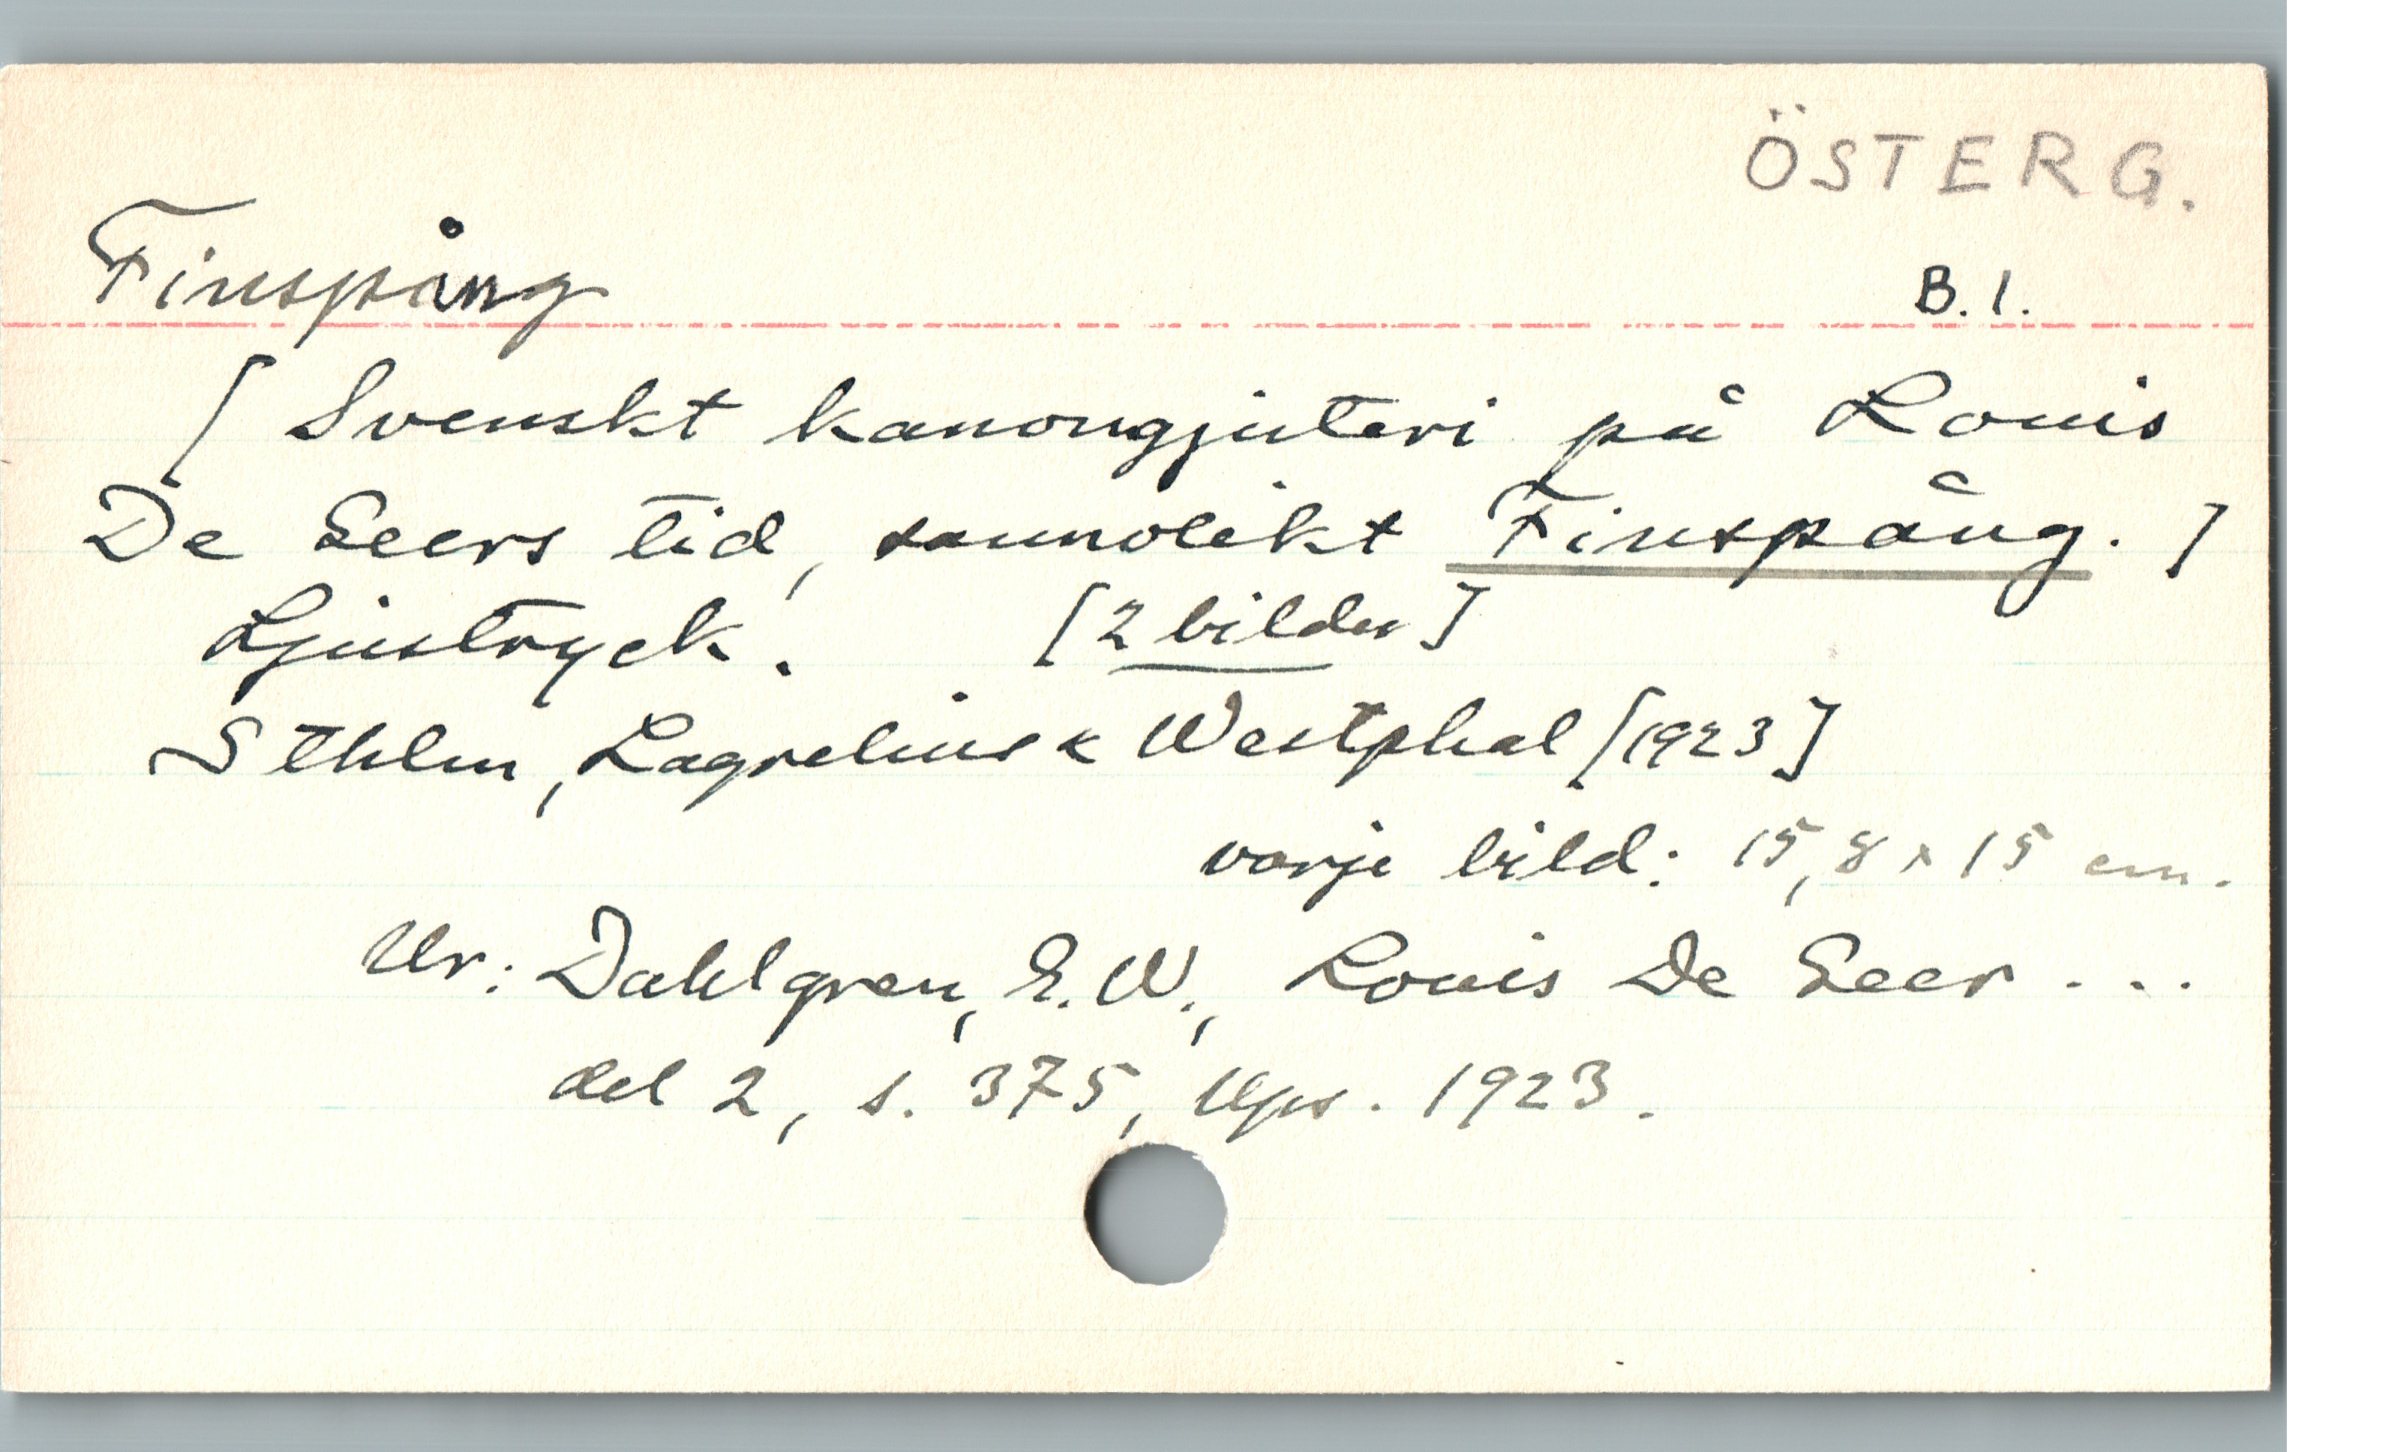 ÖSTERG.
Finspång
B. 1.
[ Svenskt kanongjuteri på Louis
De Geers tid, sannolikt Finspång. ]
Ljustryck. [2 bilder]
Sthlm, Lagrelius & Westphal [1923]
varje bild: 15,8 x 15 cm.
Ur: Dahlgren, E. W., Louis De Geer ...
del 2, s. 375, Ups. 1923.